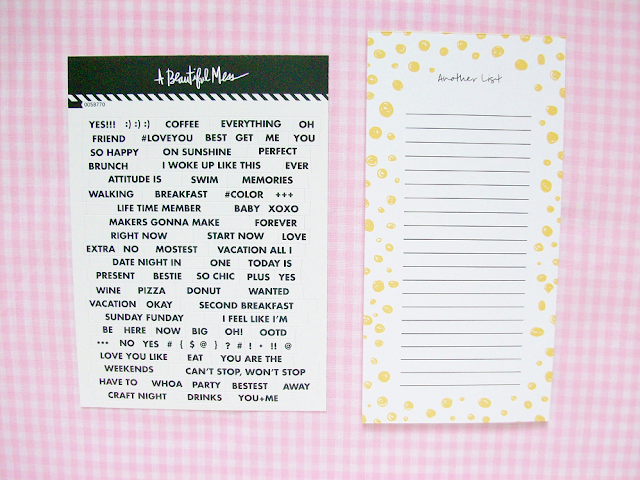 A Beautiful Mess
0058770
YES!!! :) :) :) COFFEE EVERYTHING OH
FRIEND #LOVEYOU BEST GET ME YOU
SO HAPPY ON SUNSHINE PERFECT
BRUNCH I WOKE UP LIKE THIS EVER
ATTITUDE IS SWIM MEMORIES
WALKING BREAKFAST #COLOR +++
LIFE TIME MEMBER BABY XOXO
MAKERS GONNA MAKE FOREVER
RIGHT NOW START NOW LOVE
EXTRA NO MOSTEST VACATION ALL I
DATE NIGHT IN ONE TODAY IS
PRESENT BESTIE SO CHIC PLUS YES
WINE PIZZA DONUT WANTED
VACATION OKAY SECOND BREAKFAST
SUNDAY FUNDAY I FEEL LIKE I'M
BE HERE NOW BIG OH! OOTD
••• NO YES # { $ @ } ? # ! • !! @
LOVE YOU LIKE EAT YOU ARE THE
WEEKENDS CAN'T STOP, WON'T STOP
HAVE TO WHOA PARTY BESTEST AWAY
CRAFT NIGHT DRINKS YOU+ME
Another List